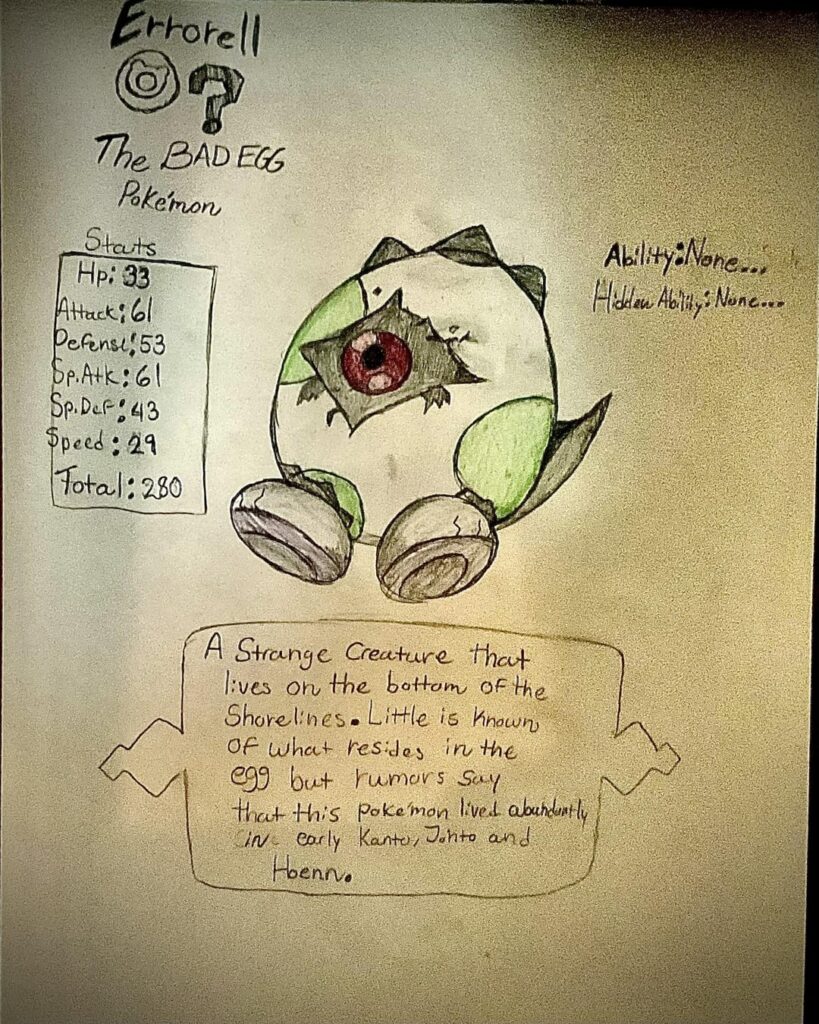 Errorell
?
The BAD EGG
Pokémon
Stats
Hp: 33
Attack: 61
Defense: 53
Sp.Atk: 61
Sp.Def: 43
Speed: 29
Total: 280
Ability: None...
Hidden Ability: None...
A Strange Creature that
lives on the bottom of the
Shorelines. Little is known
of what resides in the
egg but rumors say
that this pokémon lived abundantly
in early Kanto, Johto and
Hoenn.